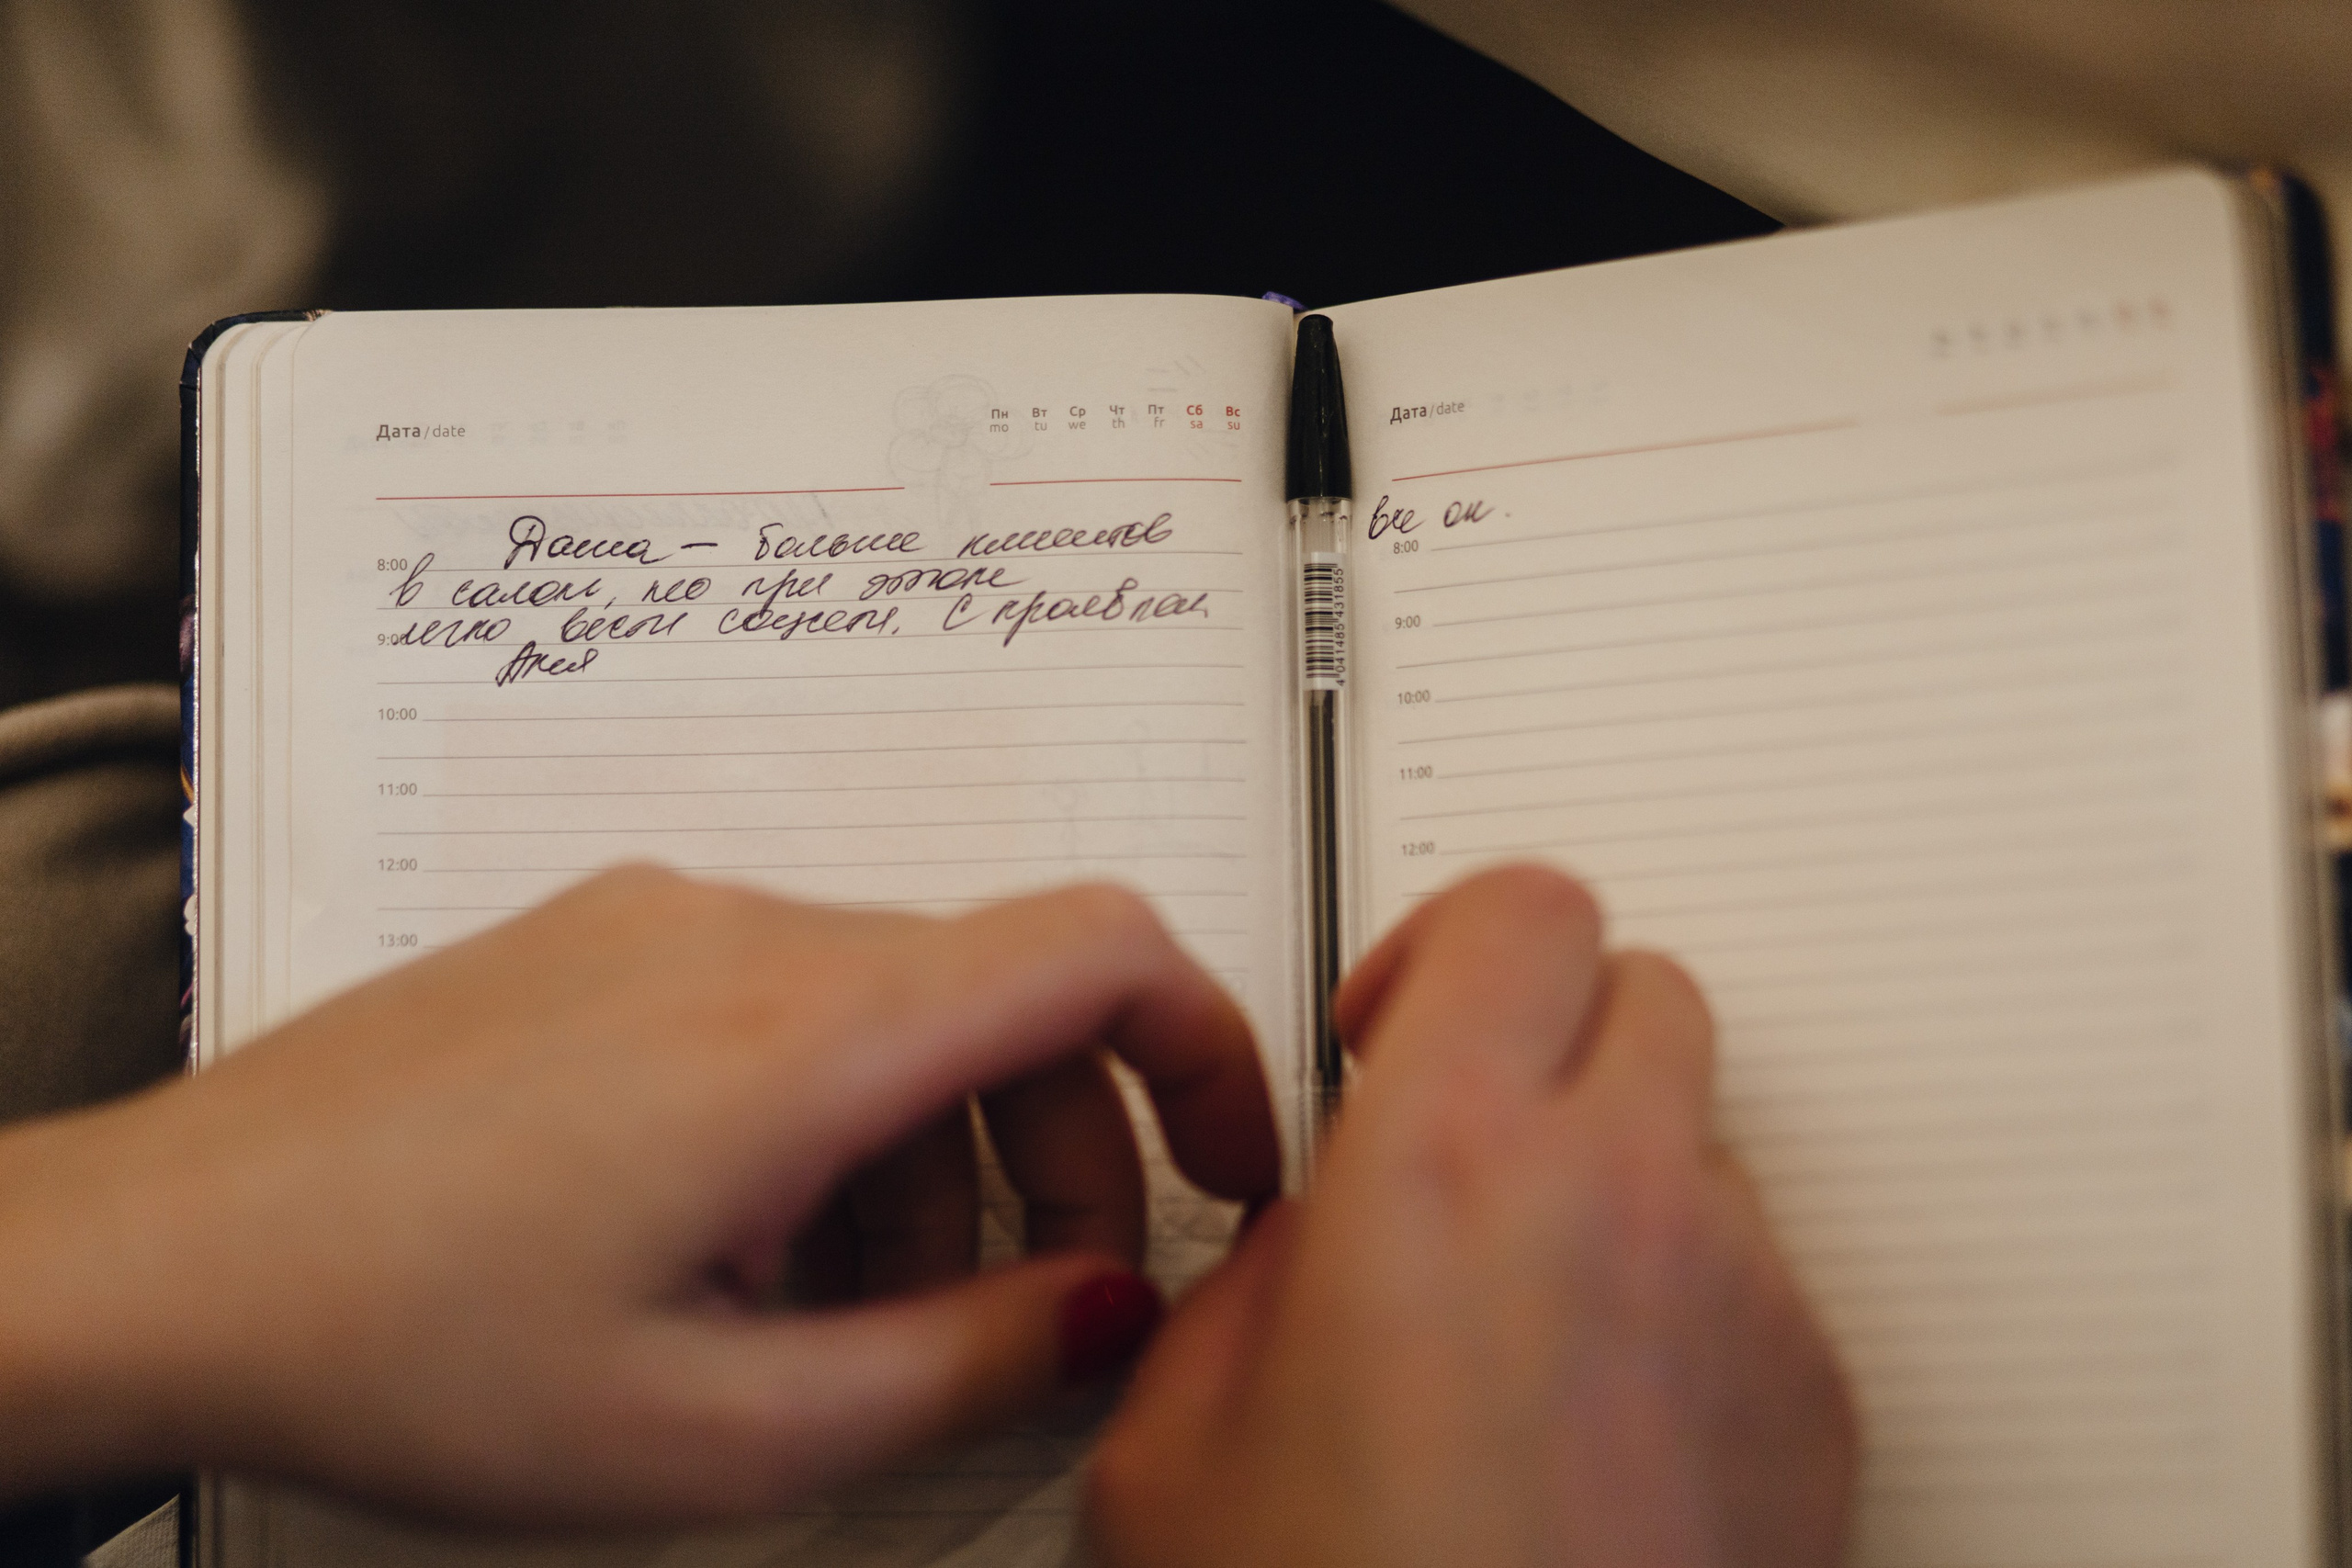 Дата/date
Пн Вт Ср Чт Пт Сб Вс
mo tu we th fr sa su
Даша — больше клиентов
8:00
в салон, но при этом
легко вести соцсети. С проявлен
9:00
Аня
10:00
11:00
12:00
13:00
4 041485 431855
Дата/date
все ок.
8:00
9:00
10:00
11:00
12:00